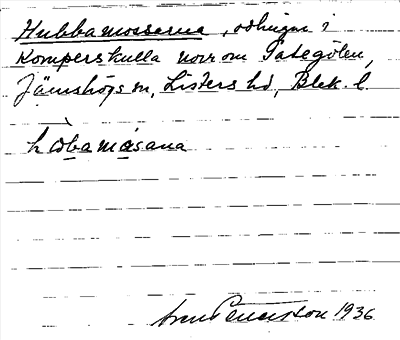 Hubbamosserna, odlingar i
Komperskulla norr om Fategölen,
Jämshögs sn, Listers hd, Blek. l.
hobamåsana
Pettersson 1936